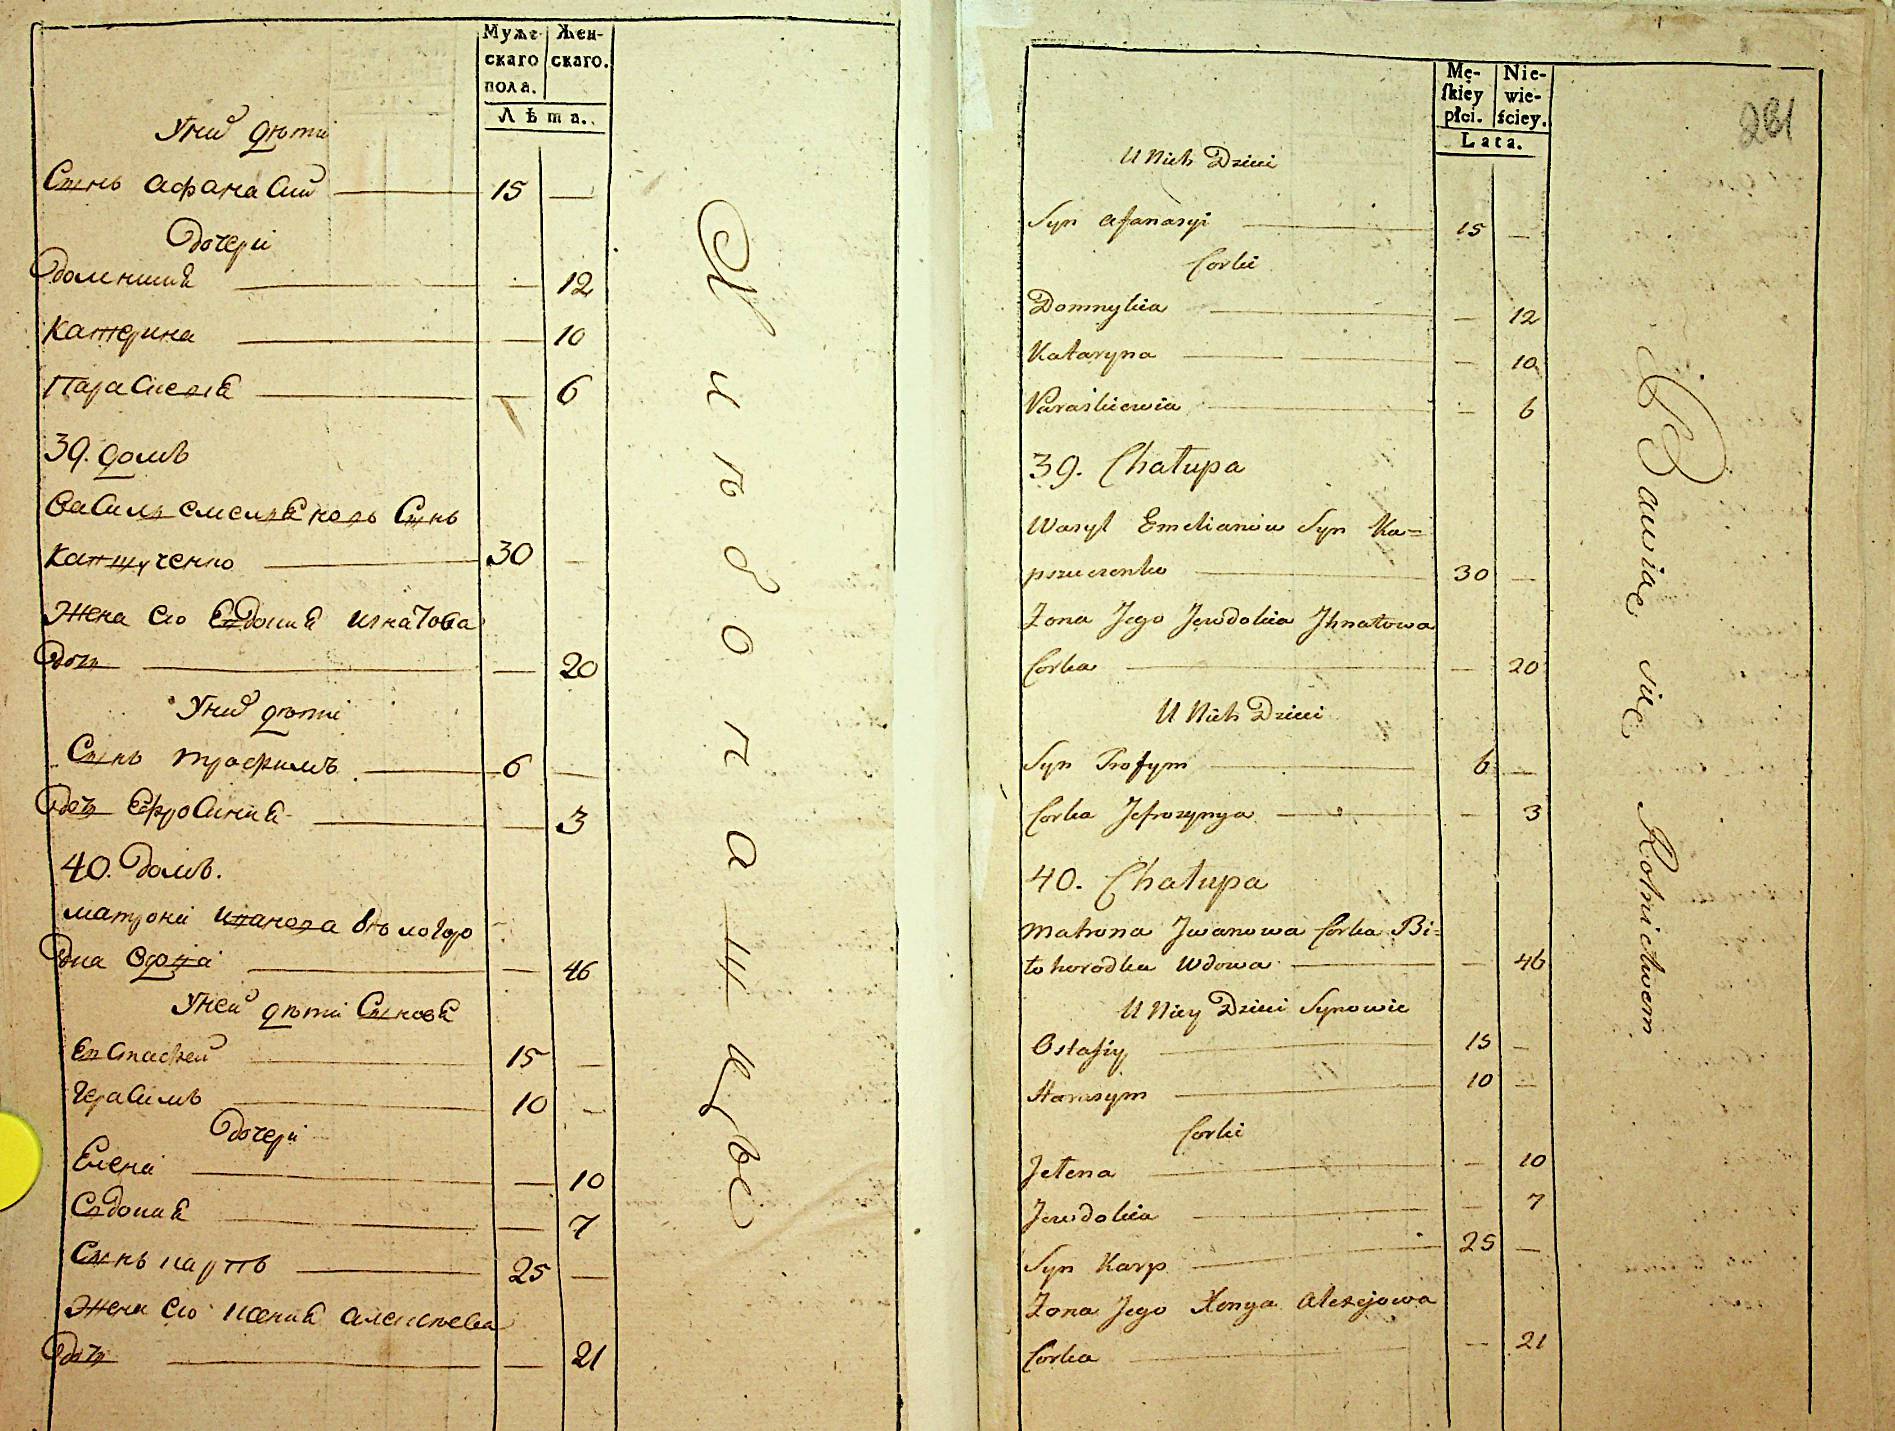 Муже-
скаго
пола.
Жен-
скаго.
Лѣта.
У них дѣти
Сынъ Афанасий 15 —
Дочери
Домникия — 12
Катерина — 10
Параскевия — 6
39. домъ
Василь Емельяновъ Сынъ
Капшученко 30 —
Жена его Евдокия Игнатова
Дочь — 20
У них дѣти
Сынъ Трофимъ 6 —
Дочь Ефросиния — 3
40. Домъ.
Матрона Иванова Бѣлогоро
дка вдова — 46
У ней дѣти Сыновя
Евстафей 15 —
Герасимъ 10 —
Дочери
Елена — 10
Евдокия — 7
Сынъ Карпъ 25 —
Жена его Ксения Алексѣева
Дочь — 21
Хлѣбопашцы
Mę-
skiey
płci.
Nie-
wie-
ściey.
Lata.
281
U Nich Dzieci
Syn Afanasyi 15 —
Corki
Domnykia — 12
Kataryna — 10
Paraskiewia — 6
39. Chałupa
Wasyl Emelianów Syn Ka=
pszuczenko 30 —
Żona Jego Jewdokia Jhnatowa
Corka — 20
U Nich Dzieci
Syn Trofym 6 —
Corka Jefrozynya — 3
40. Chałupa
Matrona Jwanowa Corka Bi=
łohorodka Wdowa — 46
U Niey Dzieci Synowie
Ostafiy 15 —
Harasym 10 —
Corki
Jełena — 10
Jewdokia — 7
Syn Karp 25 —
Żona Jego Xenya Alexejowa
Corka — 21
Bawiąc się Rolnictwem